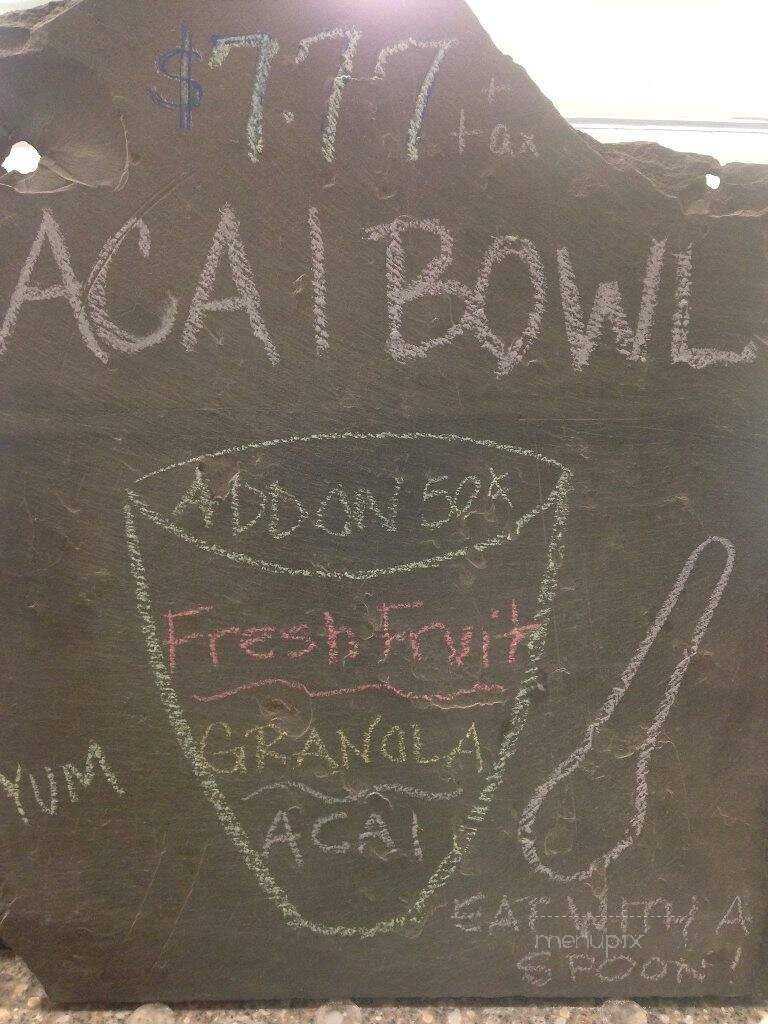 $7.77
+
tax
ACAI BOWL
ADD ON 50¢
Fresh Fruit
GRANOLA
YUM
ACAI
EAT WITH A
menupix
SPOON!